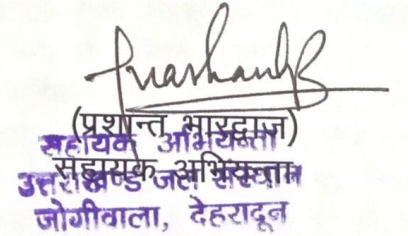 Prashant B
(प्रशान्त भारद्वाज)
सहायक अभियन्ता
सहायक अभियन्ता
उत्तराखण्ड जल संस्थान
जोगीवाला, देहरादून